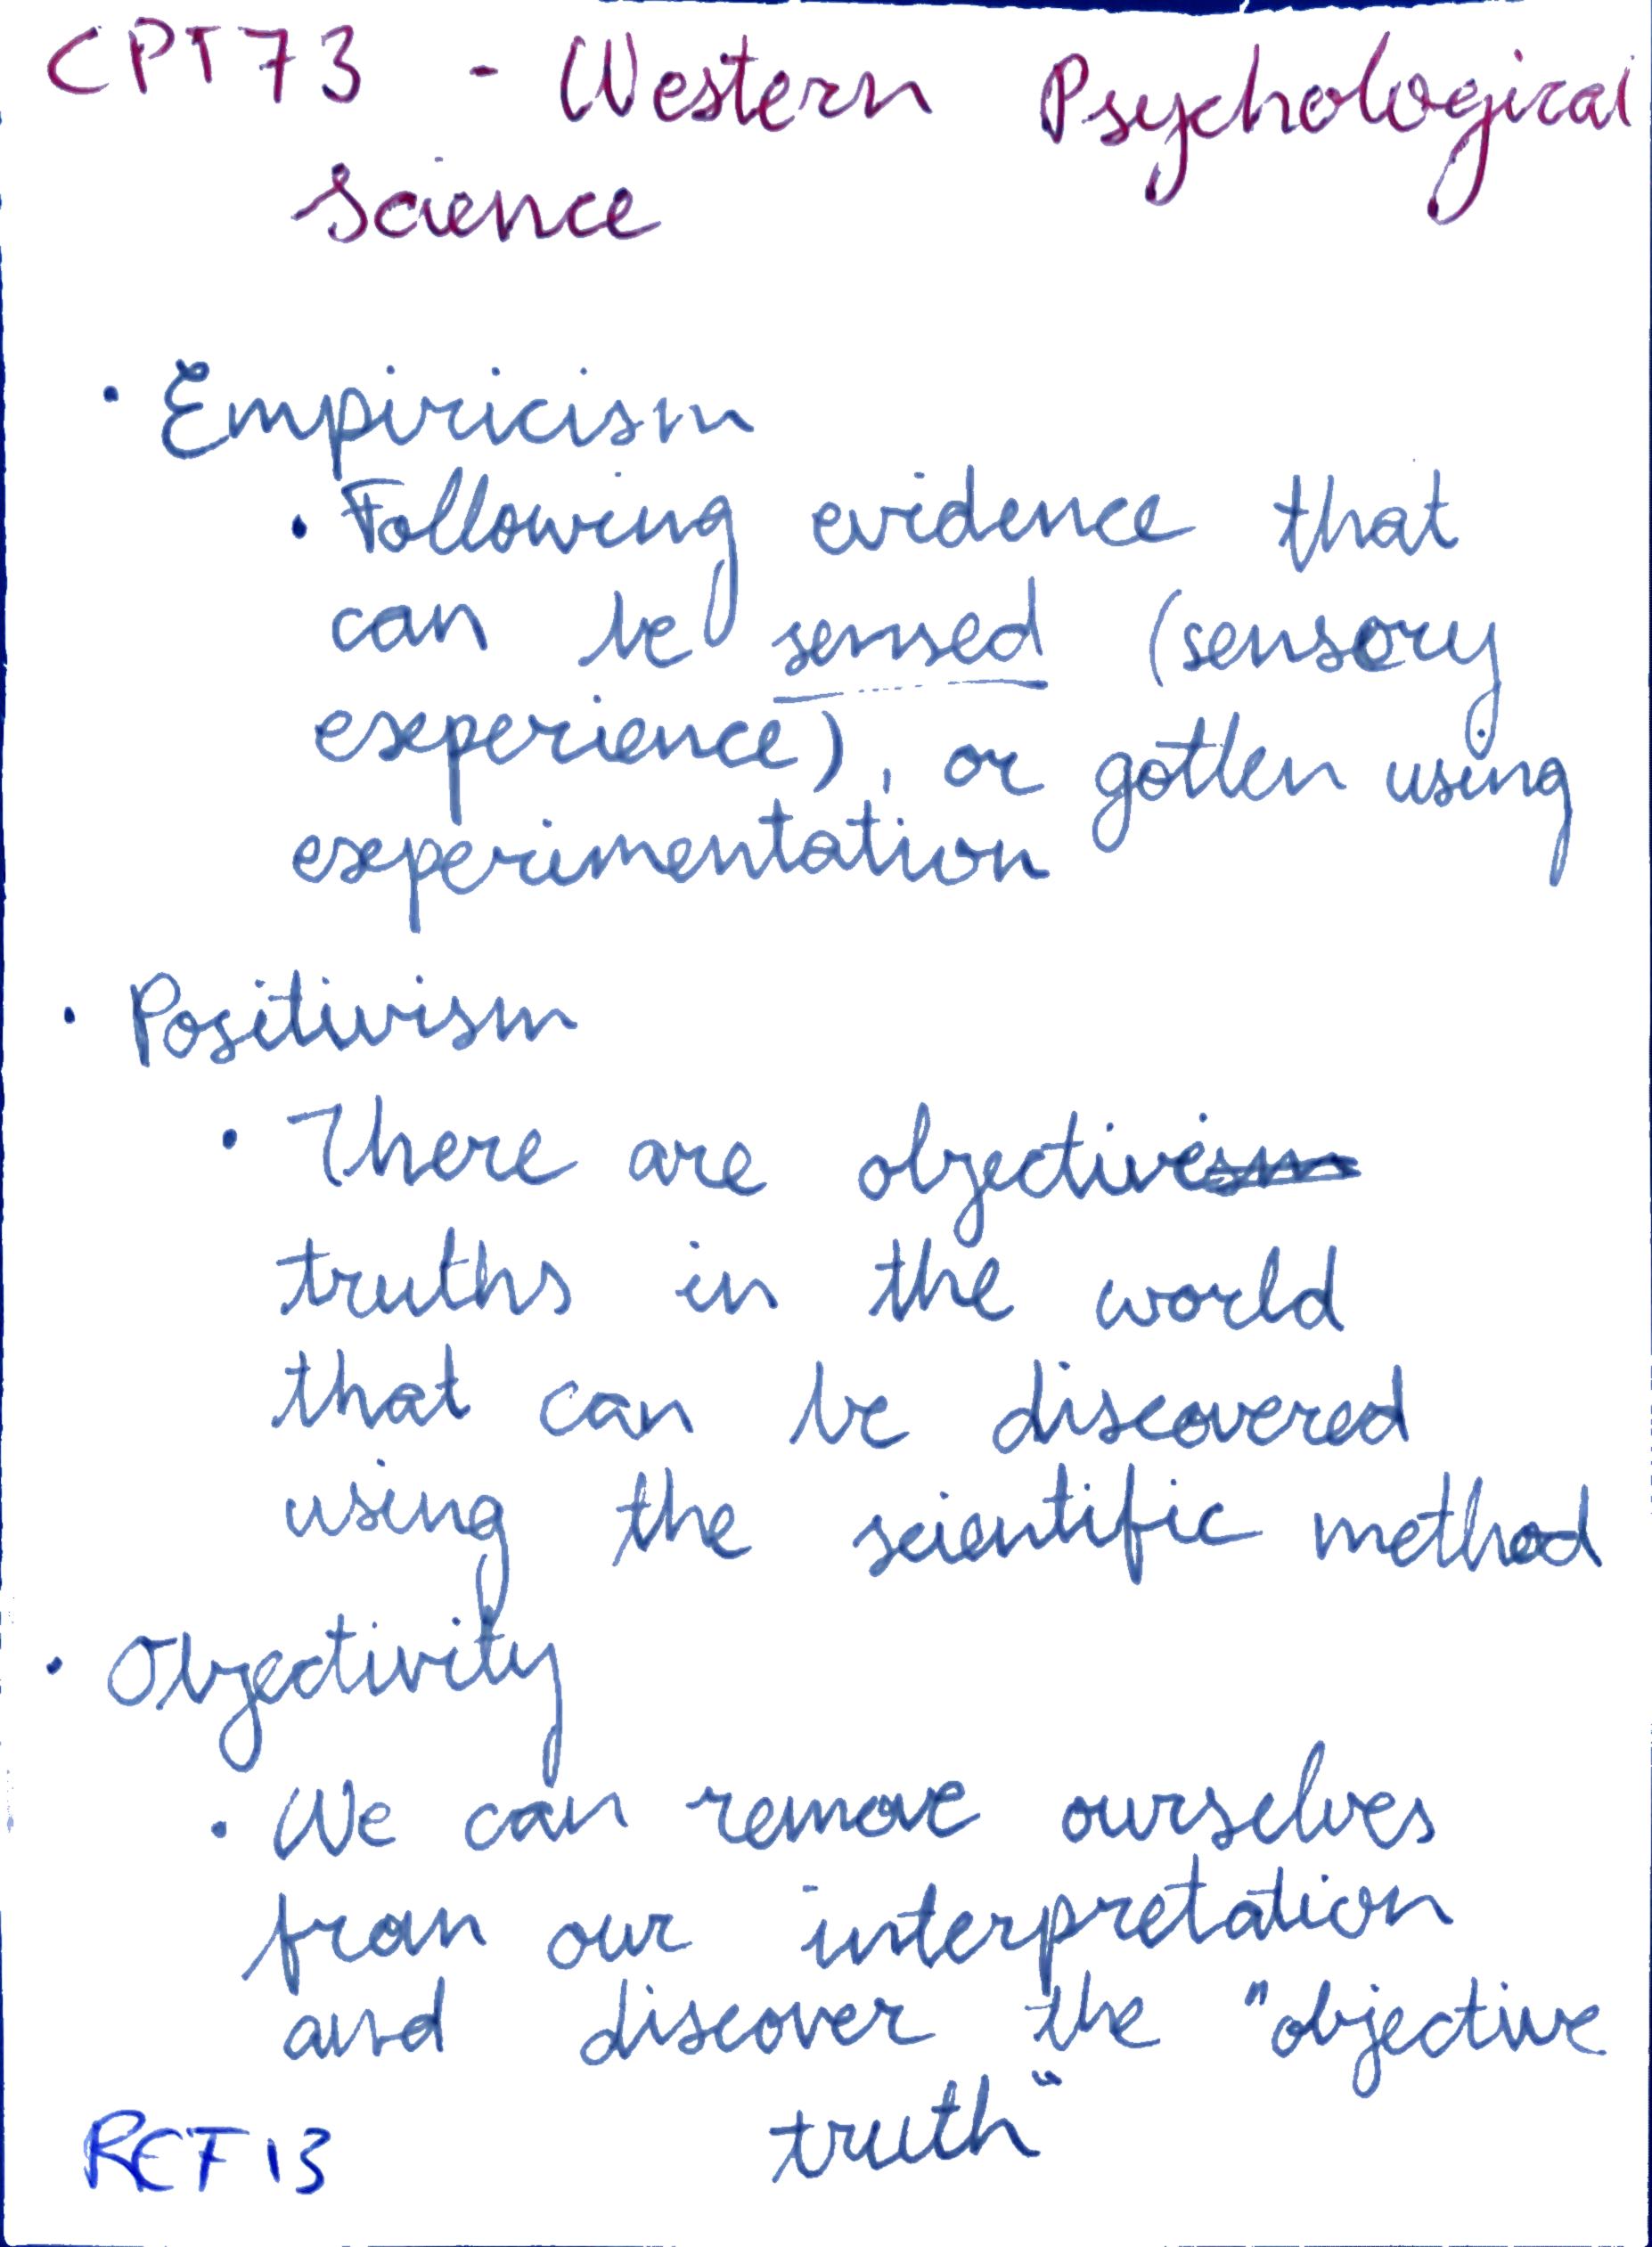 CPT73 - Western Psychological
Science
• Empiricism
• Following evidence that
can be sensed (sensory
experience), or gotten using
experimentation
• Positivism
• There are objective
truths in the world
that can be discovered
using the scientific method
• Objectivity
• We can remove ourselves
from our interpretation
and discover the "objective
truth"
REF 13